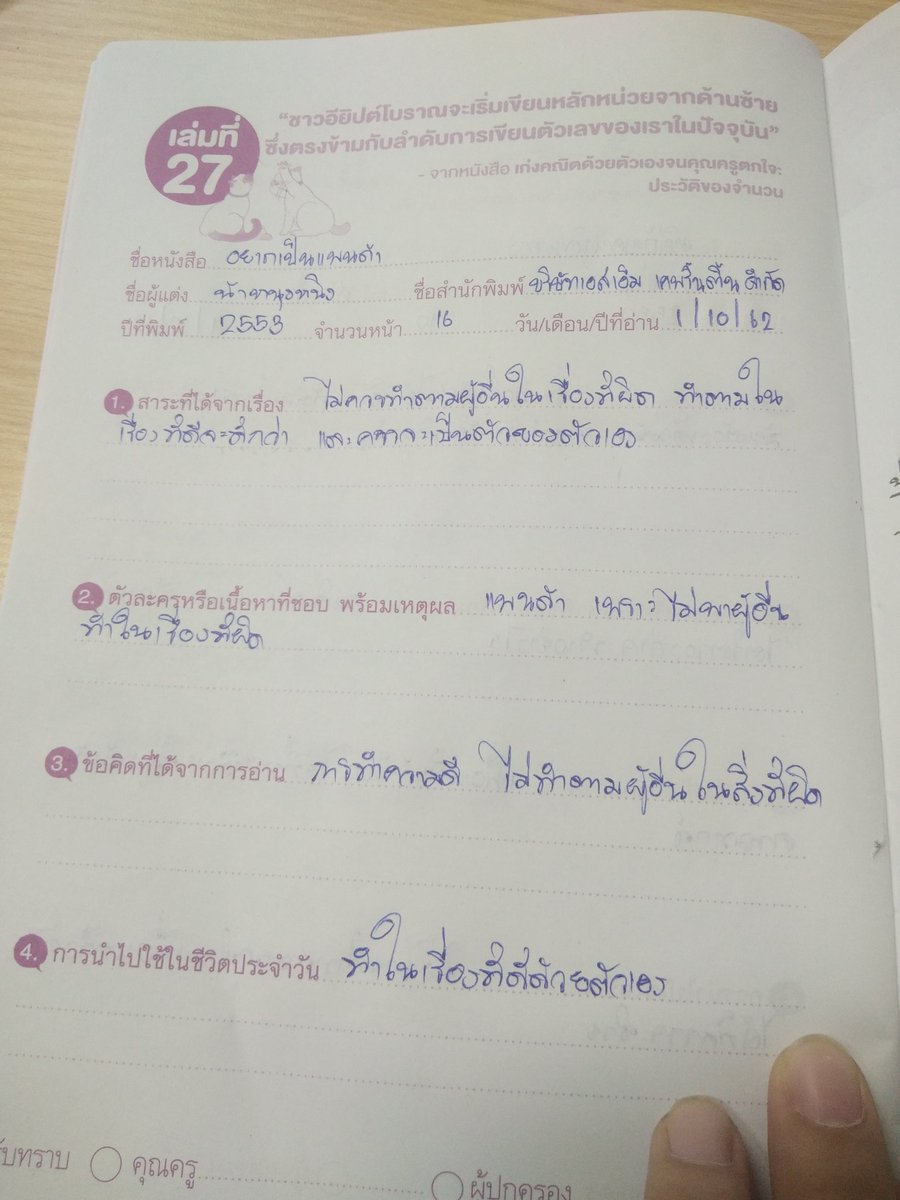 "ชาวอียิปต์โบราณจะเริ่มเขียนหลักหน่วยจากด้านซ้าย
ซึ่งตรงข้ามกับลำดับการเขียนตัวเลขของเราในปัจจุบัน"
- จากหนังสือ เก่งคณิตด้วยตัวเองจนคุณครูตกใจ:
ประวัติของจำนวน
เล่มที่
27
ชื่อหนังสือ อยากเป็นแพนด้า
ชื่อผู้แต่ง น้าหนูหนิง ชื่อสำนักพิมพ์ บริษัทเอสเอ็ม จำกัด
ปีที่พิมพ์ 2553 จำนวนหน้า 16 วัน/เดือน/ปีที่อ่าน 1/10/62
1. สาระที่ได้จากเรื่อง ไม่ควรทำตามผู้อื่นในเรื่องที่ผิด ทำตามใน
เรื่องที่ดีจะดีกว่า และควรจะเป็นตัวของตัวเอง
2. ตัวละครหรือเนื้อหาที่ชอบ พร้อมเหตุผล แพนด้า เพราะไม่พาผู้อื่น
ทำในเรื่องที่ผิด
3. ข้อคิดที่ได้จากการอ่าน การทำความดี ไม่ทำตามผู้อื่นในสิ่งที่ผิด
4. การนำไปใช้ในชีวิตประจำวัน ทำในเรื่องที่ดีด้วยตัวเอง
รับทราบ คุณครู ผู้ปกครอง